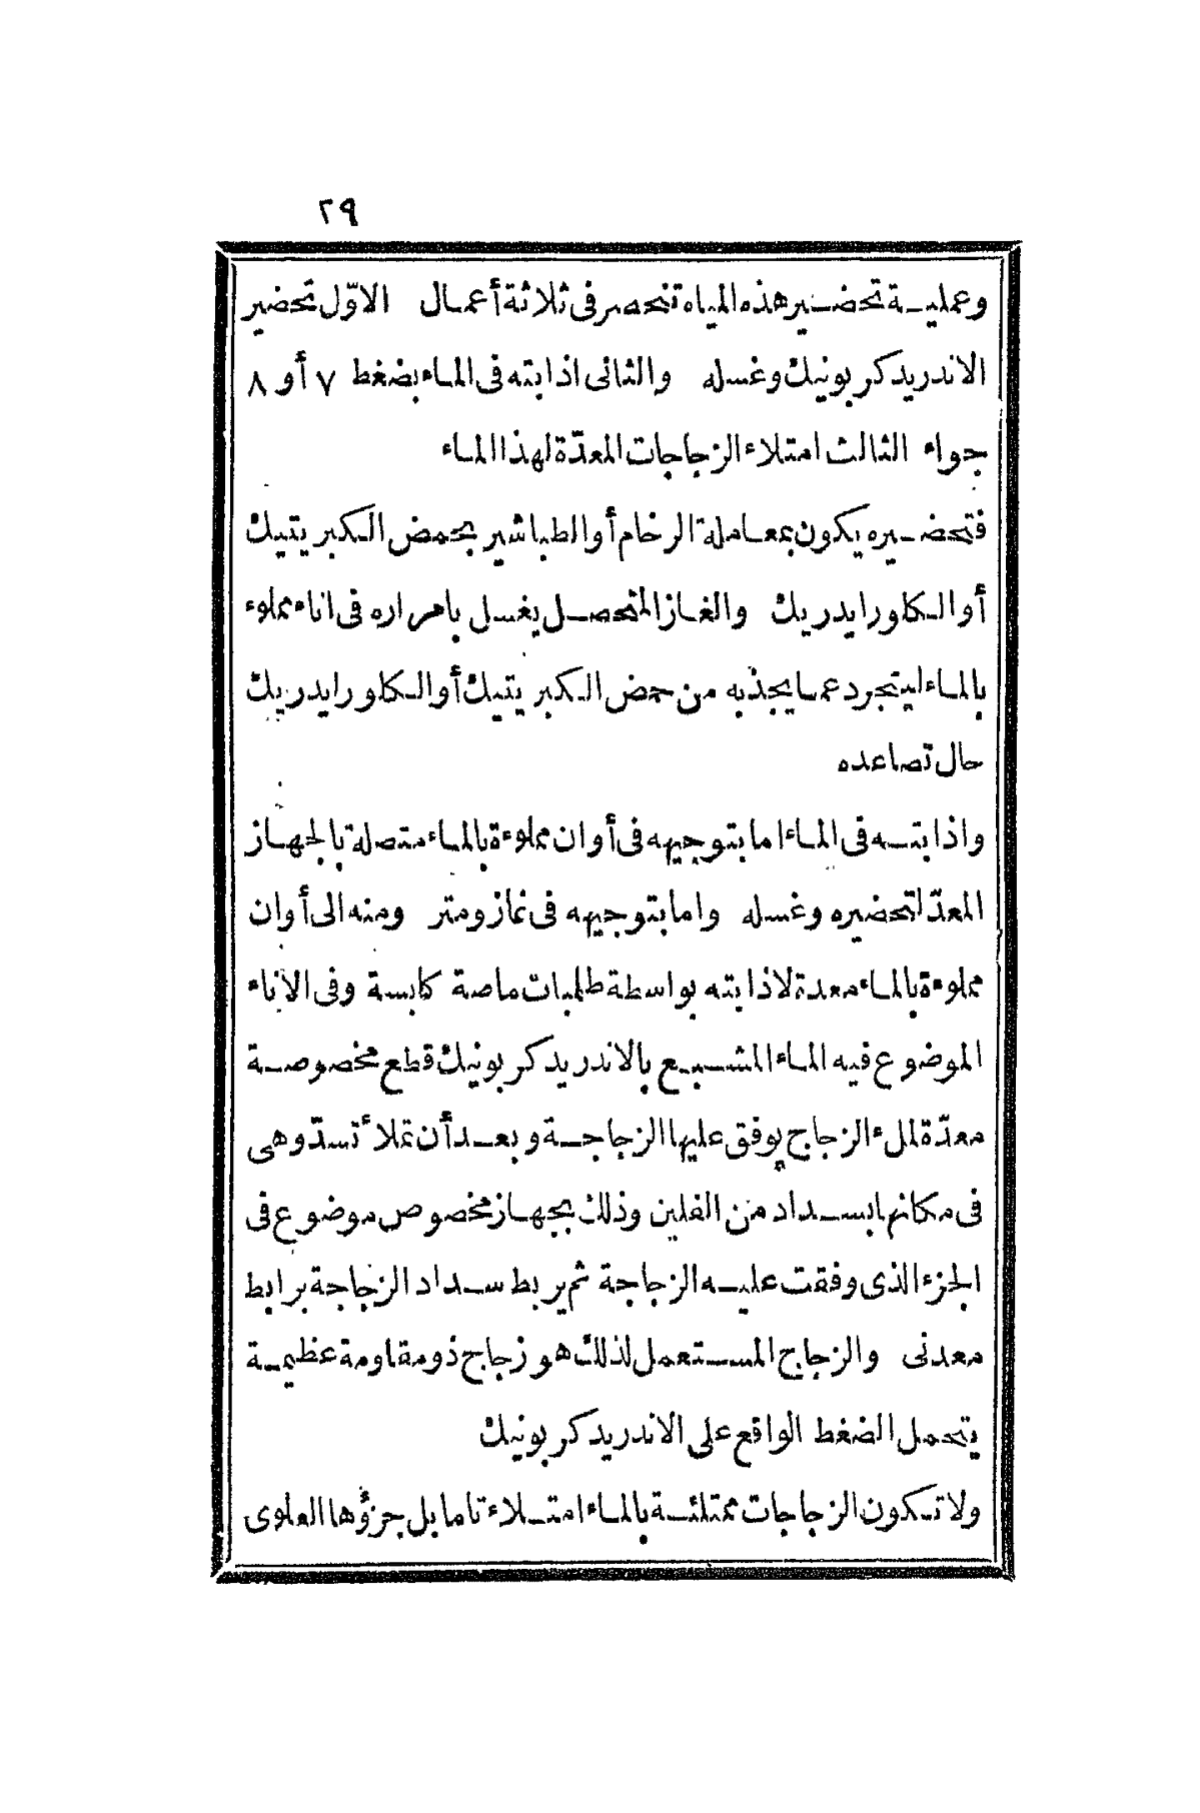 ٢٩
وعملية تحضير هذه المياه تنحصر فى ثلاثة أعمال الاوّل تحضير
الاندريد كربونيك وغسله والثانى اذابته فى الماء بضغط ٧ أو ٨
جواء الثالث امتلاء الزجاجات المعدّة لهذا الماء
فتحضيره يكون بمعاملة الرخام أو الطباشير بحمض الكبريتيك
أو الكلورايدريك والغاز المتحصل يغسل بامراره فى اناء مملوء
بالماء ليتجرد عما يجذبه من حمض الكبريتيك أو الكلورايدريك
حال تصاعده
واذابته فى الماء اما بتوجيهه فى أوان مملوءة بالماء متصلة بالجهاز
المعدّ لتحضيره وغسله واما بتوجيهه فى غازومتر ومنه الى أوان
مملوءة بالماء معدة لاذابته بواسطة طلمبات ماصة كابسة وفى الاناء
الموضوع فيه الماء المشبع بالاندريد كربونيك قطع مخصوصة
معدّة لملء الزجاج يوفق عليها الزجاجة وبعد أن تملأ تسدّ وهى
فى مكانها بسداد من الفلين وذلك بجهاز مخصوص موضوع فى
الجزء الذى وفقت عليه الزجاجة ثم يربط سداد الزجاجة برابط
معدنى والزجاج المستعمل لذلك هو زجاج ذو مقاومة عظيمة
يتحمل الضغط الواقع على الاندريد كربونيك
ولا تكون الزجاجات ممتلئة بالماء امتلاء تاما بل جزؤها العلوى